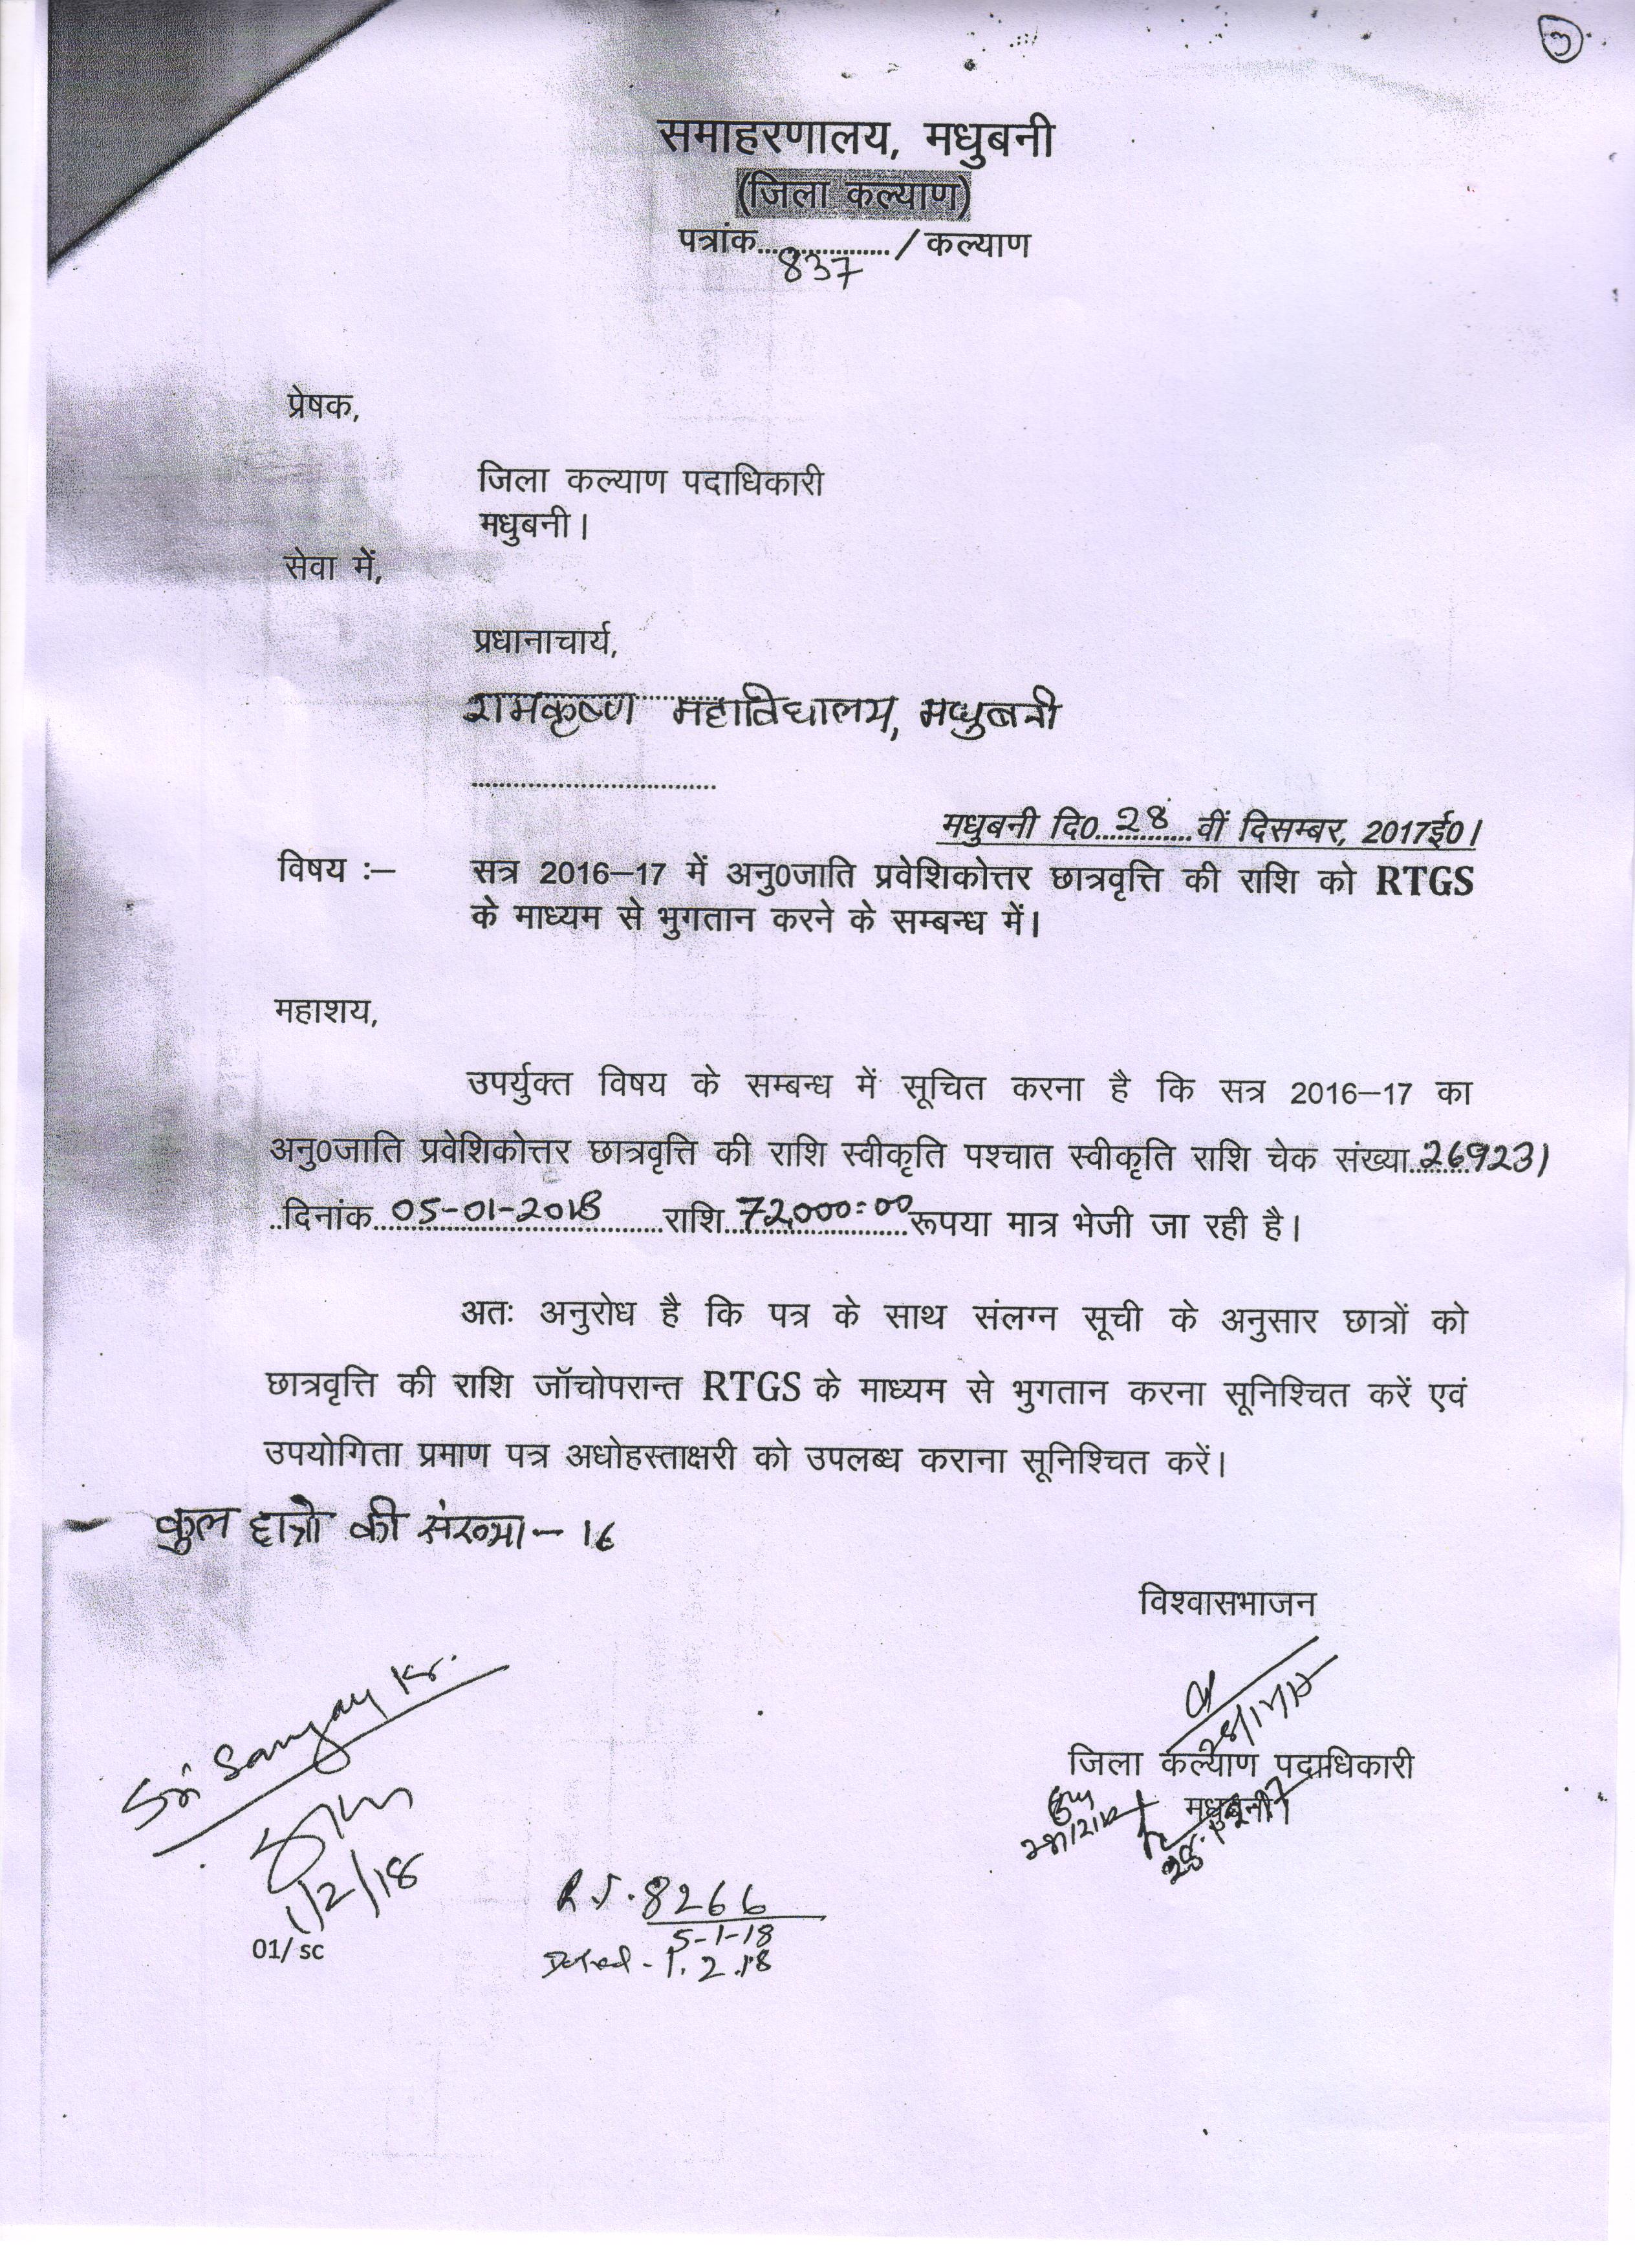 3
समाहरणालय, मधुबनी
(जिला कल्याण)
पत्रांक..................../कल्याण
837
प्रेषक,
जिला कल्याण पदाधिकारी
मधुबनी।
सेवा में,
प्रधानाचार्य,
रामकृष्ण महाविद्यालय, मधुबनी
....................................
मधुबनी दि0...28...वीं दिसम्बर, 2017ई0।
विषय :– सत्र 2016–17 में अनु0जाति प्रवेशिकोत्तर छात्रवृत्ति की राशि को RTGS
के माध्यम से भुगतान करने के सम्बन्ध में।
महाशय,
उपर्युक्त विषय के सम्बन्ध में सूचित करना है कि सत्र 2016–17 का
अनु0जाति प्रवेशिकोत्तर छात्रवृत्ति की राशि स्वीकृति पश्चात स्वीकृति राशि चेक संख्या 269231
..दिनांक 05-01-2018 राशि 72,000=00 रूपया मात्र भेजी जा रही है।
अतः अनुरोध है कि पत्र के साथ संलग्न सूची के अनुसार छात्रों को
छात्रवृत्ति की राशि जॉचोपरान्त RTGS के माध्यम से भुगतान करना सूनिश्चित करें एवं
उपयोगिता प्रमाण पत्र अधोहस्ताक्षरी को उपलब्ध कराना सूनिश्चित करें।
– कुल छात्रो की संख्या – 16
विश्वासभाजन
जिला कल्याण पदाधिकारी
मधुबनी।
Sri Sanjay Kr.
1/2/18
01/ sc
R.J. 8266
5-1-18
Dated - 1.2.18